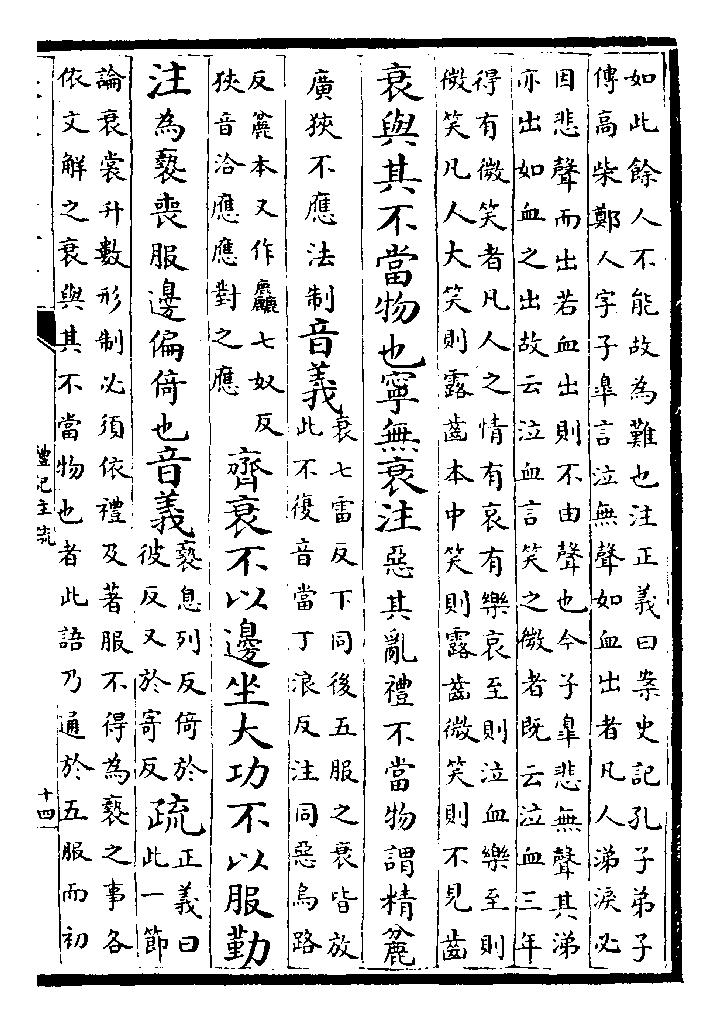 如此餘人不能故為難也注正義曰案史記孔子弟子
傳高柴鄭人字子臯言泣無聲如血出者凡人涕淚必
因悲聲而出若血出則不由聲也今子臯悲無聲其涕
亦出如血之出故云泣血言笑之微者既云泣血三年
得有微笑者凡人之情有哀有樂哀至則泣血樂至則
微笑凡人大笑則露齒本中笑則露齒微笑則不見齒
衰與其不當物也寧無衰注惡其亂禮不當物謂精麄
廣狹不應法制音義衰七雷反下同後五服之衰皆放
此不復音當丁浪反注同惡烏路
反麄本又作麤七奴反
狹音洽應應對之應
齊衰不以邊坐大功不以服勤
注為褻喪服邊偏倚也音義褻息列反倚於
彼反又於寄反
疏正義曰
此一節
論衰裳升數形制必須依禮及著服不得為褻之事各
依文解之衰與其不當物也者此語乃通於五服而初
禮記注疏
十四